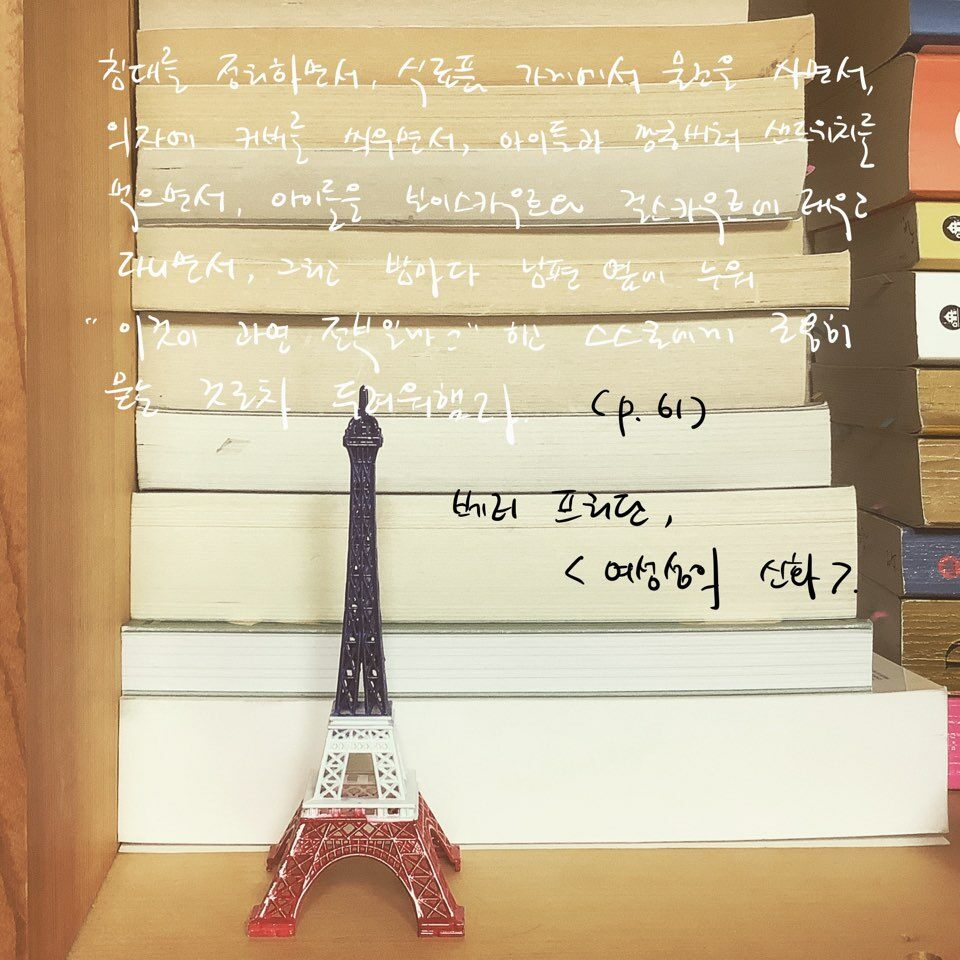 침대를 정리하면서, 식료품 가게에서 물건을 사면서,
의자에 커버를 씌우면서, 아이들과 땅콩버터 샌드위치를
먹으면서, 아이들을 보이스카우트와 걸스카우트에 태우고
다니면서, 그리고 밤마다 남편 옆에 누워
"이것이 과연 전부일까?" 하고 스스로에게 조용히
묻는 것조차 두려워했다. (p. 61)
베티 프리단,
<여성성의 신화>.